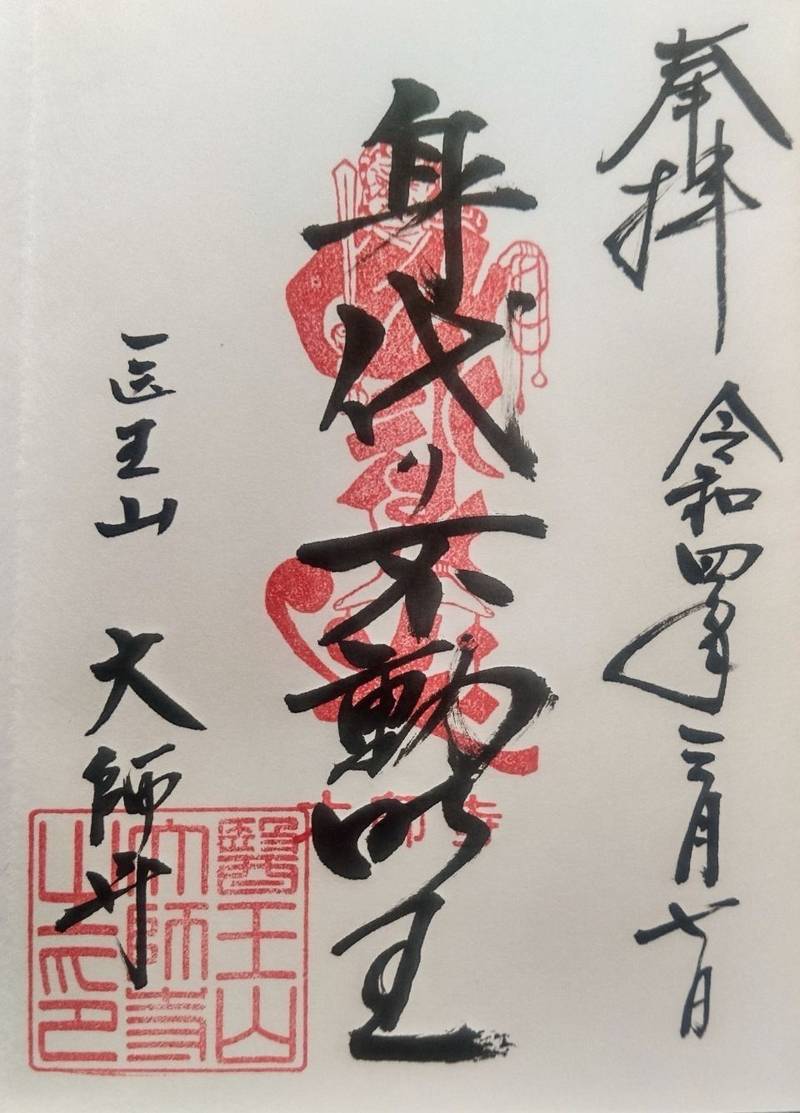 奉拝
令和四年三月七日
身代り不動明王
大師寺
医王山 大師寺
醫王山
大師寺
之印